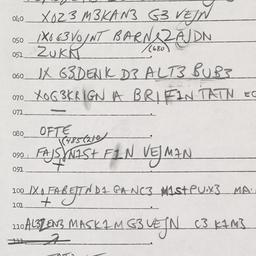 040 XOZ3 M3KAN3 G3 VEJN
050 IX1G3VOJNT BARN ZAJDN
051 ZUKN (680)
060 IX G3DENK D3 ALT3 BUB3
070 XOG3KRIGN A BRIF1N TATN EC
071
080 OFTE
(485/210)
090 FAJSVN1St F1N VEJM1N
091
100 IXOFAB3JTND1 GANC3 M1StPUX3 MA
101
110 AL3ZEN3 MASK1M G3VEJN C3 K1M3